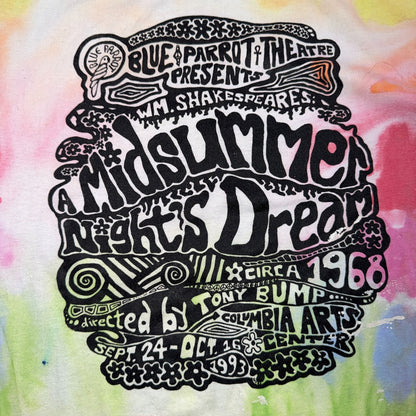 BLUE PARROT
BLUE PARROT THEATRE
PRESENTS
WM. SHAKESPEARES:
A Midsummer
Night's Dream
CIRCA 1968
directed by TONY BUMP
COLUMBIA ARTS
CENTER
SEPT 24-OCT 16
1993